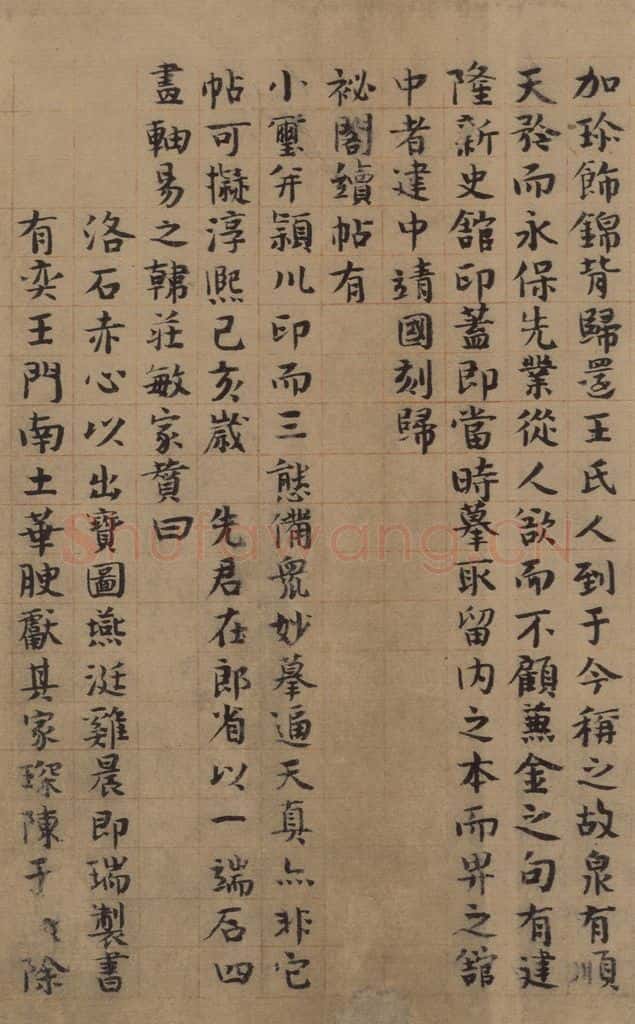 加珎飾錦背歸還王氏人到于今稱之故泉有順
天於而永保先業從人欲而不顧蒹金之句有建
隆新史館印蓋即當時摹取留内之本而畀之館
中者建中靖國刻歸
祕閣續帖有
小璽并潁川印而三態備衆妙摹逼天真亦非它
帖可擬淳熙己亥歲 先君在郎省以一端石四
畫軸易之韓莊敏家贊曰
洛石赤心以出寶圖燕涎雞晨即瑞製書
有奕王門南土華腴獻其家琛陳于 除
Shufawang.CN